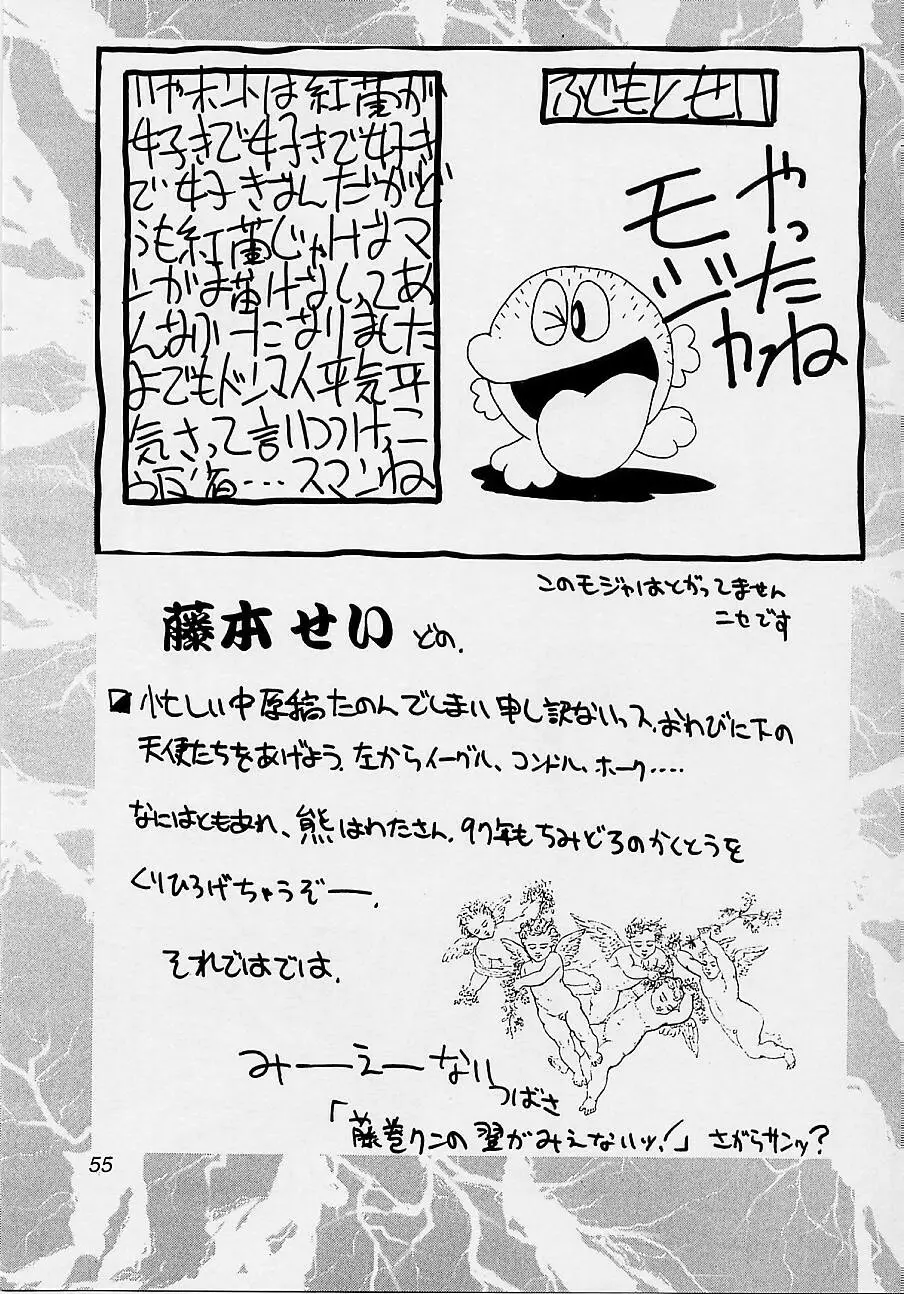 ふじもとせい
やったね
モジャ
いやホントは紅蘭が
好きで好きで好き
で好きなんだがど
うも紅蘭じゃげばマ
ンがお描けなしてあ
んなかーたになりました
よでもドンマイ平気平
気さって言いつつけっこ
う反省…スマンね
このモジャはとがってません
ニセです
藤本せい どの.
忙しい中原稿たのんでしまい申し訳ないっス.おわびに下の
天使たちをあげよう.左からイーグル、コンドル、ホーク‥‥
なにはともあれ、熊はわたさん.97年もちみどろのかくとうを
くりひろげちゃうぞー.
それではでは.
みーえーない
つばさ
「藤巻クンの翼がみえないッ!」さがらサンッ?
55